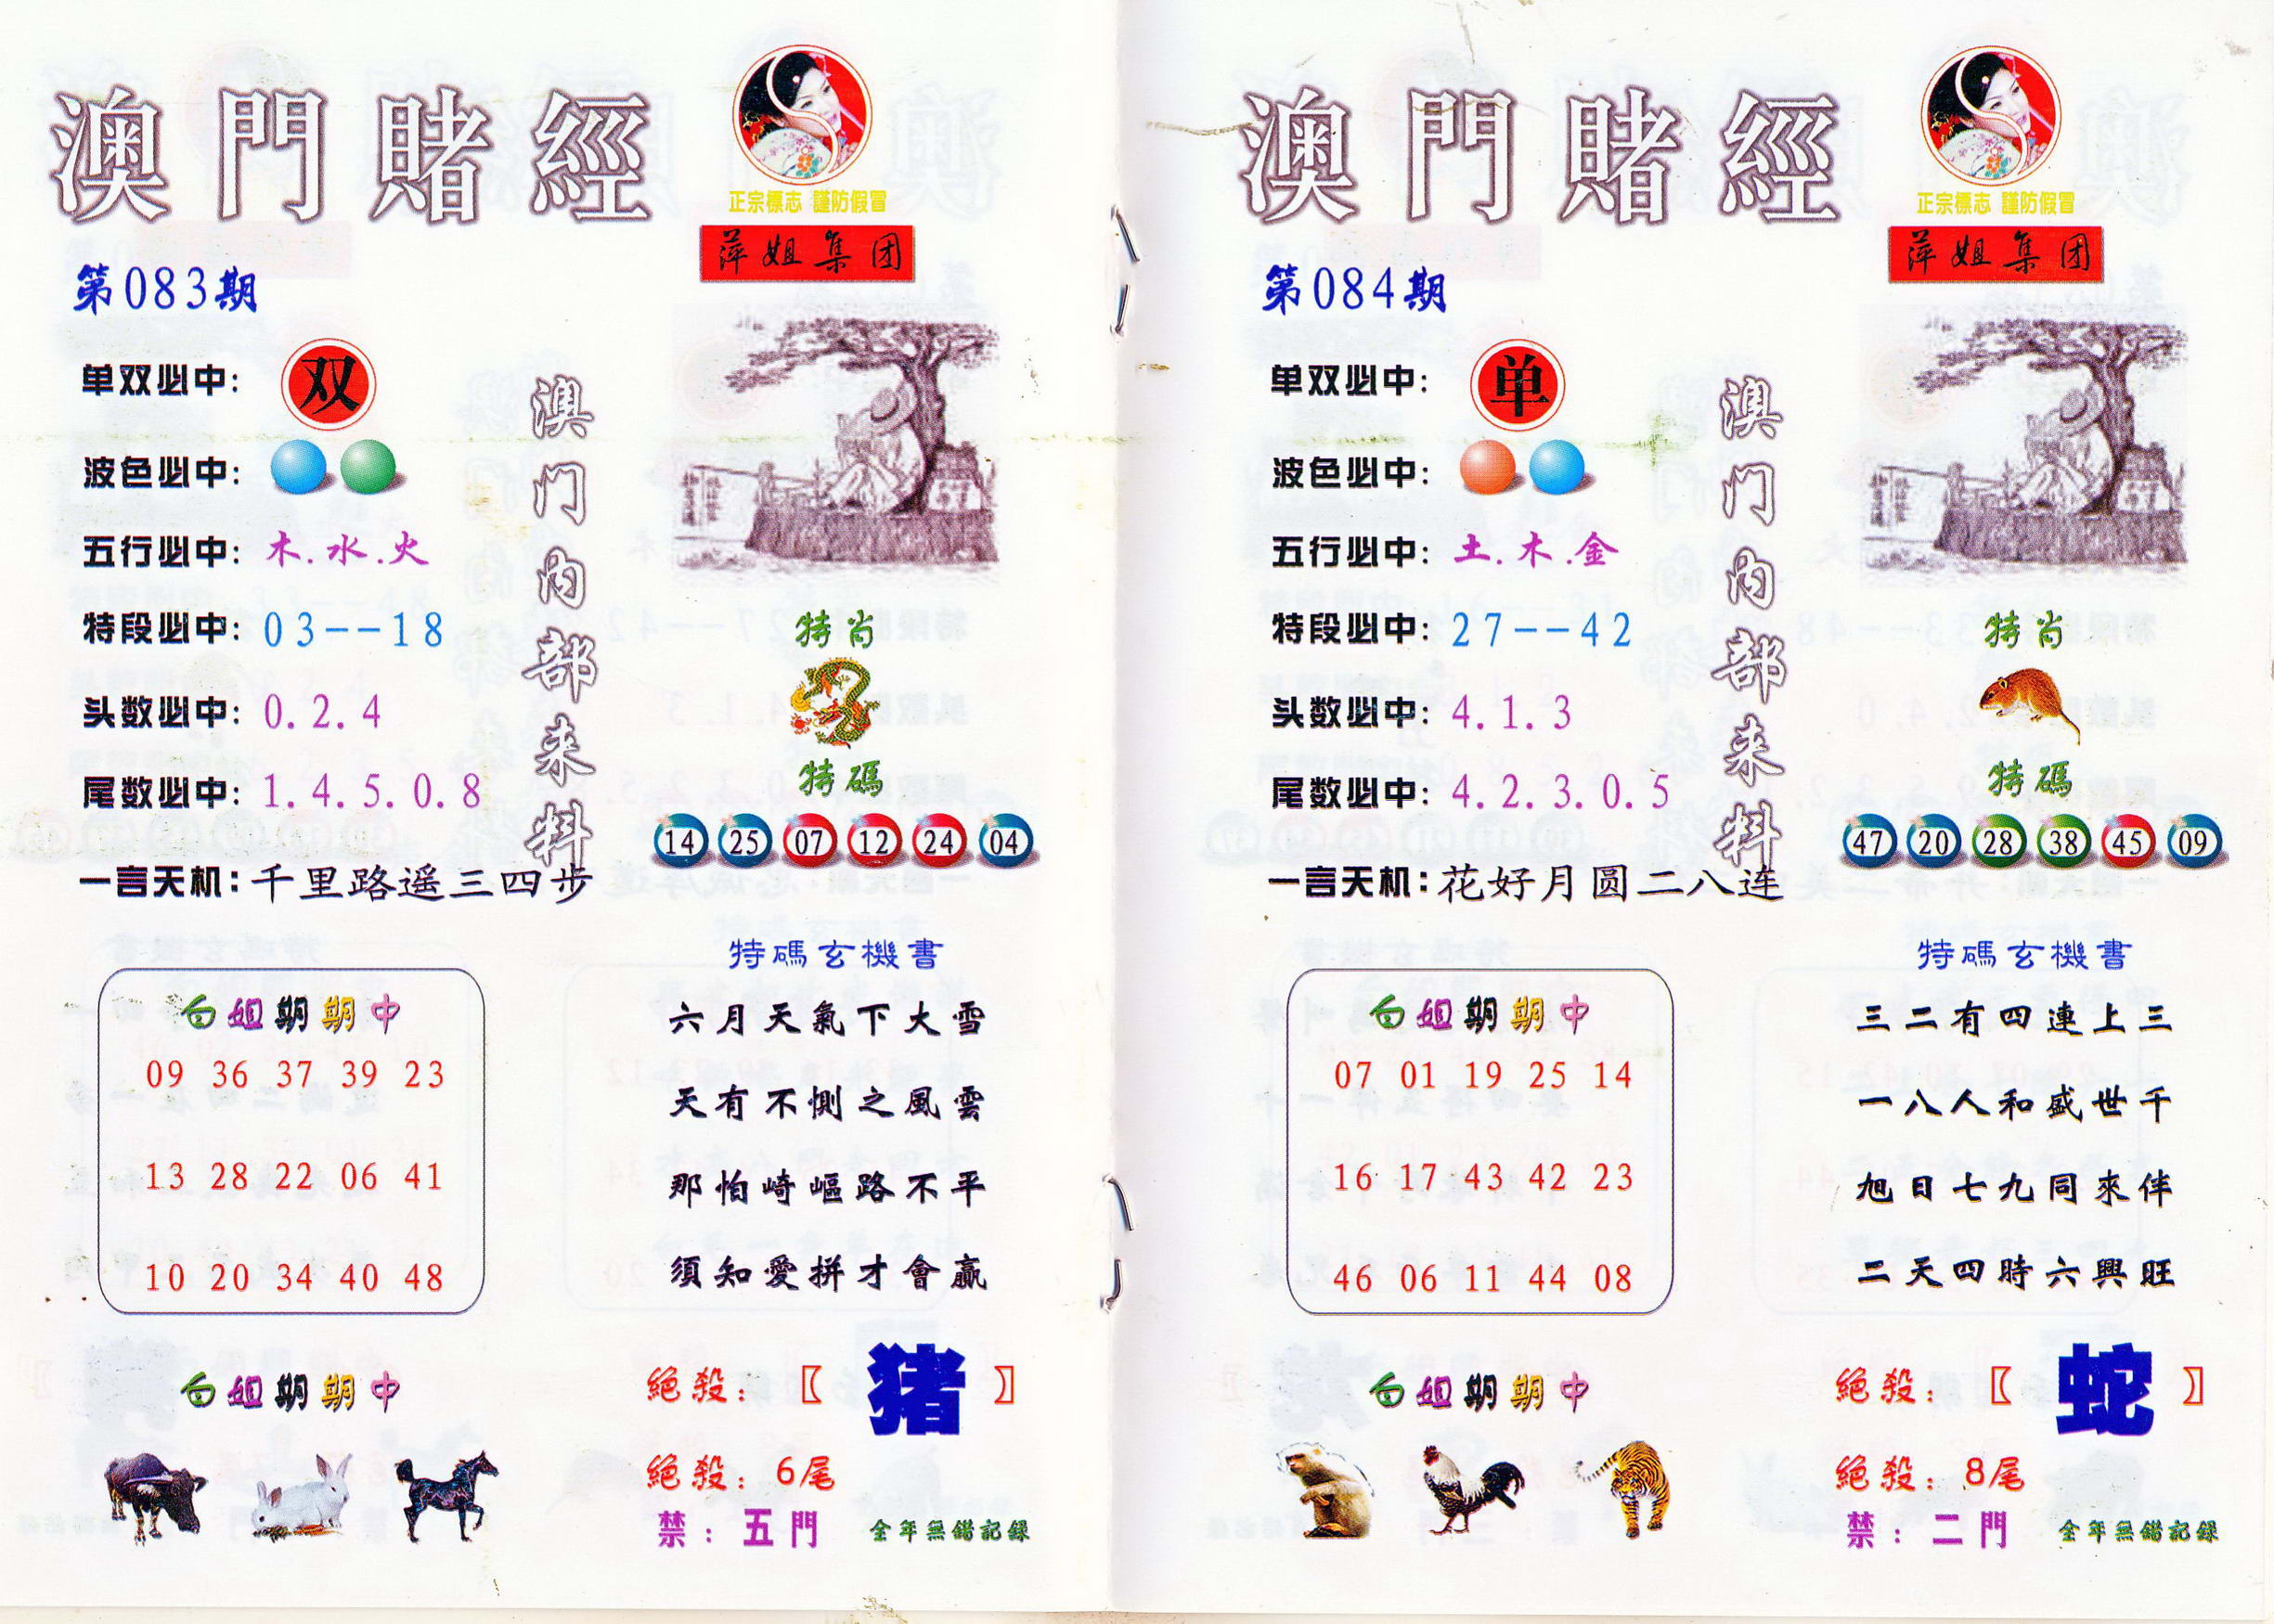 澳門賭經
正宗標志 謹防假冒
萍姐集团
第083期
单双必中: 双
波色必中:
五行必中: 木.水.火
特段必中: 03--18
头数必中: 0.2.4
尾数必中: 1.4.5.0.8
一言天机: 千里路遥三四步
澳门内部来料
特肖
特碼
14 25 07 12 24 04
白姐期期中
09 36 37 39 23
13 28 22 06 41
10 20 34 40 48
特碼玄機書
六月天氣下大雪
天有不惻之風雲
那怕崎嶇路不平
須知愛拼才會贏
白姐期期中
絕殺:〖猪〗
絕殺: 6尾
禁: 五門
全年無錯記録
澳門賭經
正宗標志 謹防假冒
萍姐集团
第084期
单双必中: 单
波色必中:
五行必中: 土.木.金
特段必中: 27--42
头数必中: 4.1.3
尾数必中: 4.2.3.0.5
一言天机: 花好月圆二八连
澳门内部来料
特肖
特碼
47 20 28 38 45 09
白姐期期中
07 01 19 25 14
16 17 43 42 23
46 06 11 44 08
特碼玄機書
三二有四連上三
一八人和盛世千
旭日七九同來伴
二天四時六興旺
白姐期期中
絕殺:〖蛇〗
絕殺: 8尾
禁: 二門
全年無錯記録